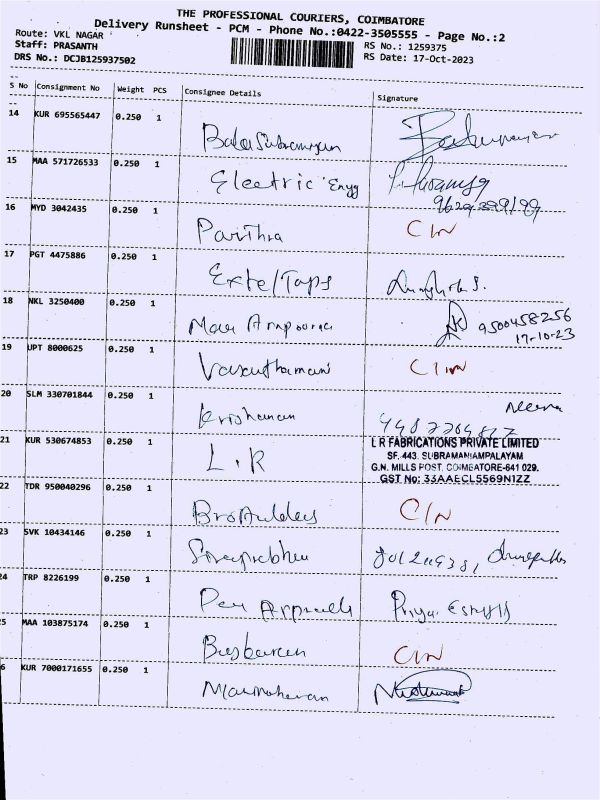 THE PROFESSIONAL COURIERS, COIMBATORE
Delivery Runsheet - PCM - Phone No.:0422-3505555 - Page No.:2
Route: VKL NAGAR
RS No.: 1259375
Staff: PRASANTH
RS Date: 17-Oct-2023
DRS No.: DCJB125937502
S No Consignment No Weight PCS Consignee Details Signature
14 KUR 695565447 0.250 1 Balasubramaniyan
15 MAA 571726533 0.250 1 Electric Engg
16 MYD 3042435 0.250 1 Parithra C/N
17 PGT 4475886 0.250 1 Extel Taps
18 NKL 3250400 0.250 1 9500458256
17-10-23
19 UPT 8000625 0.250 1 Vasanthamani
20 SLM 330701844 0.250 1 Krishanan Meena
21 KUR 530674853 0.250 1 L.R
L R FABRICATIONS PRIVATE LIMITED
SF. 443. SUBRAMANIAMPALAYAM
G.N. MILLS POST, COIMBATORE-641 029.
GST No: 33AAECL5569N1ZZ
22 TDR 950040296 0.250 1 C/N
23 SVK 10434146 0.250 1
24 TRP 8226199 0.250 1 Pen Apparels Priya
5 MAA 103875174 0.250 1 C/N
6 KUR 7000171655 0.250 1 Manoharan